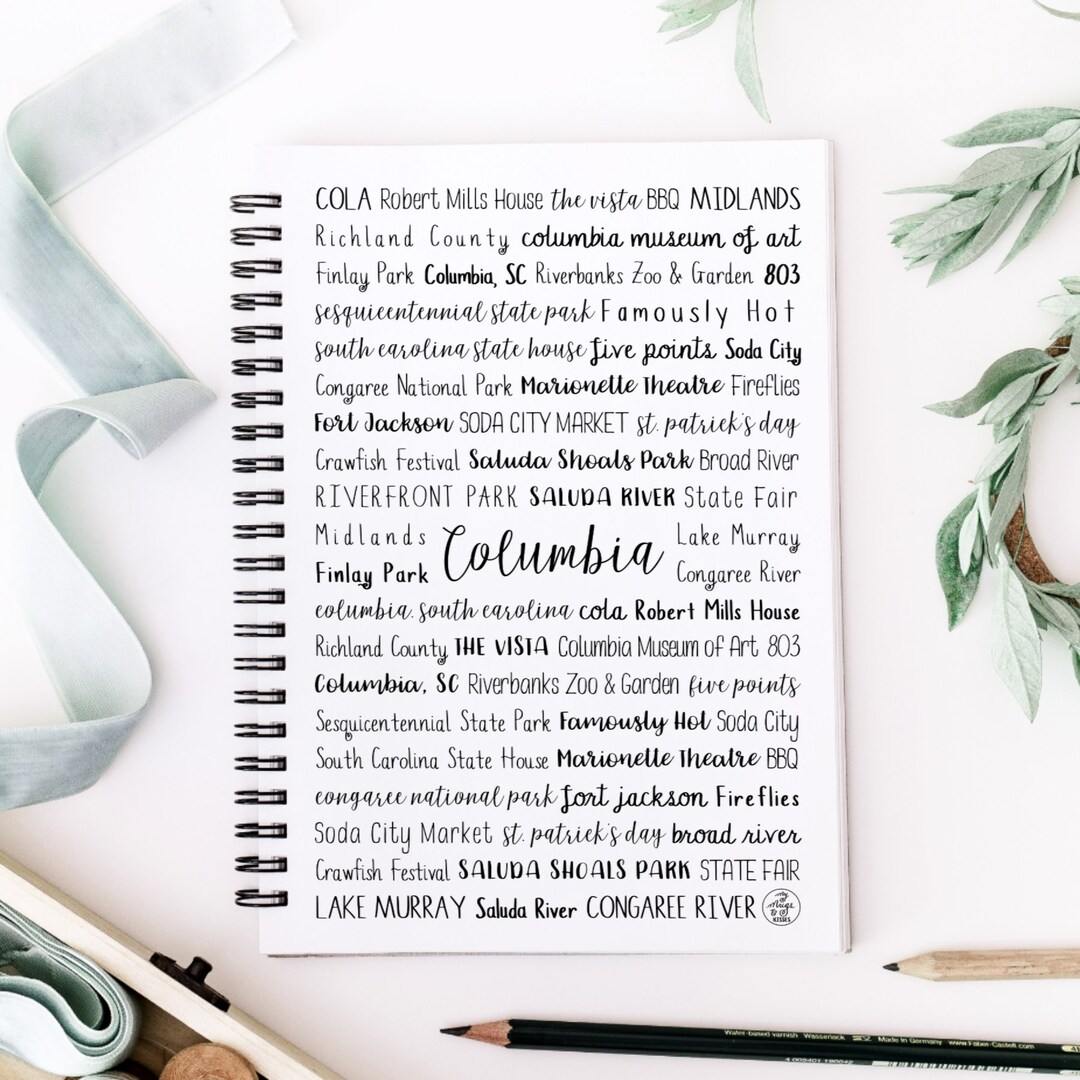 COLA Robert Mills House the vista BBQ MIDLANDS
Richland County columbia museum of art
Finlay Park Columbia, SC Riverbanks Zoo & Garden 803
sesquicentennial state park Famously Hot
south carolina state house five points Soda City
Congaree National Park Marionette Theatre Fireflies
Fort Jackson SODA CITY MARKET st. patrick's day
Crawfish Festival Saluda Shoals Park Broad River
RIVERFRONT PARK SALUDA RIVER State Fair
Midlands Columbia Lake Murray
Finlay Park Congaree River
columbia. south carolina cola Robert Mills House
Richland County THE VISTA Columbia Museum of Art 803
Columbia, SC Riverbanks Zoo & Garden five points
Sesquicentennial State Park Famously Hot Soda City
South Carolina State House Marionette Theatre BBQ
congaree national park fort jackson Fireflies
Soda City Market st. patrick's day broad river
Crawfish Festival SALUDA SHOALS PARK STATE FAIR
LAKE MURRAY Saluda River CONGAREE RIVER
KISSES
Water-based varnish Wasserlack Made in Germany www.Faber-Castell.com